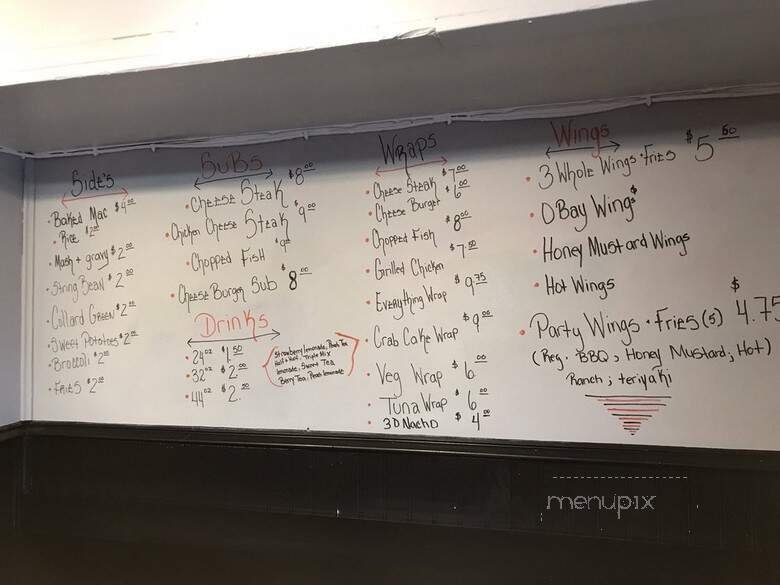 Side's
• Baked Mac $4.00
• Rice $2.00
• Mash + gravy $2.00
• String Bean $2.00
• Collard Green $2.00
• Sweet Potatoes $2.00
• Broccoli $2.00
• Fries $2.00
SUBS
• Cheese Steak $8.00
• Chicken Cheese Steak $9.00
• Chopped Fish $9.00
• Cheese Burger Sub $8.00
Drinks
• 24oz $1.50
• 32oz $2.00
• 44oz $2.50
Strawberry lemonade, Peach Tea
Half + Half, Triple Mix
lemonade, Sweet Tea
Berry Tea, Peach lemonade
Wraps
• Cheese Steak $7.00
• Cheese Burger $6.00
• Chopped Fish $8.00
• Grilled Chicken $7.50
• Everything Wrap $9.75
• Crab Cake Wrap $9.00
• Veg Wrap $6.00
• Tuna Wrap $6.00
• 3D Nacho $4.00
Wings
• 3 Whole Wings • Fries $5.50
• O Bay Wings
• Honey Mustard Wings
• Hot Wings
• Party Wings • Fries (5) $4.75
(Reg. BBQ ; Honey Mustard ; Hot)
Ranch ; teriyaki
menupix